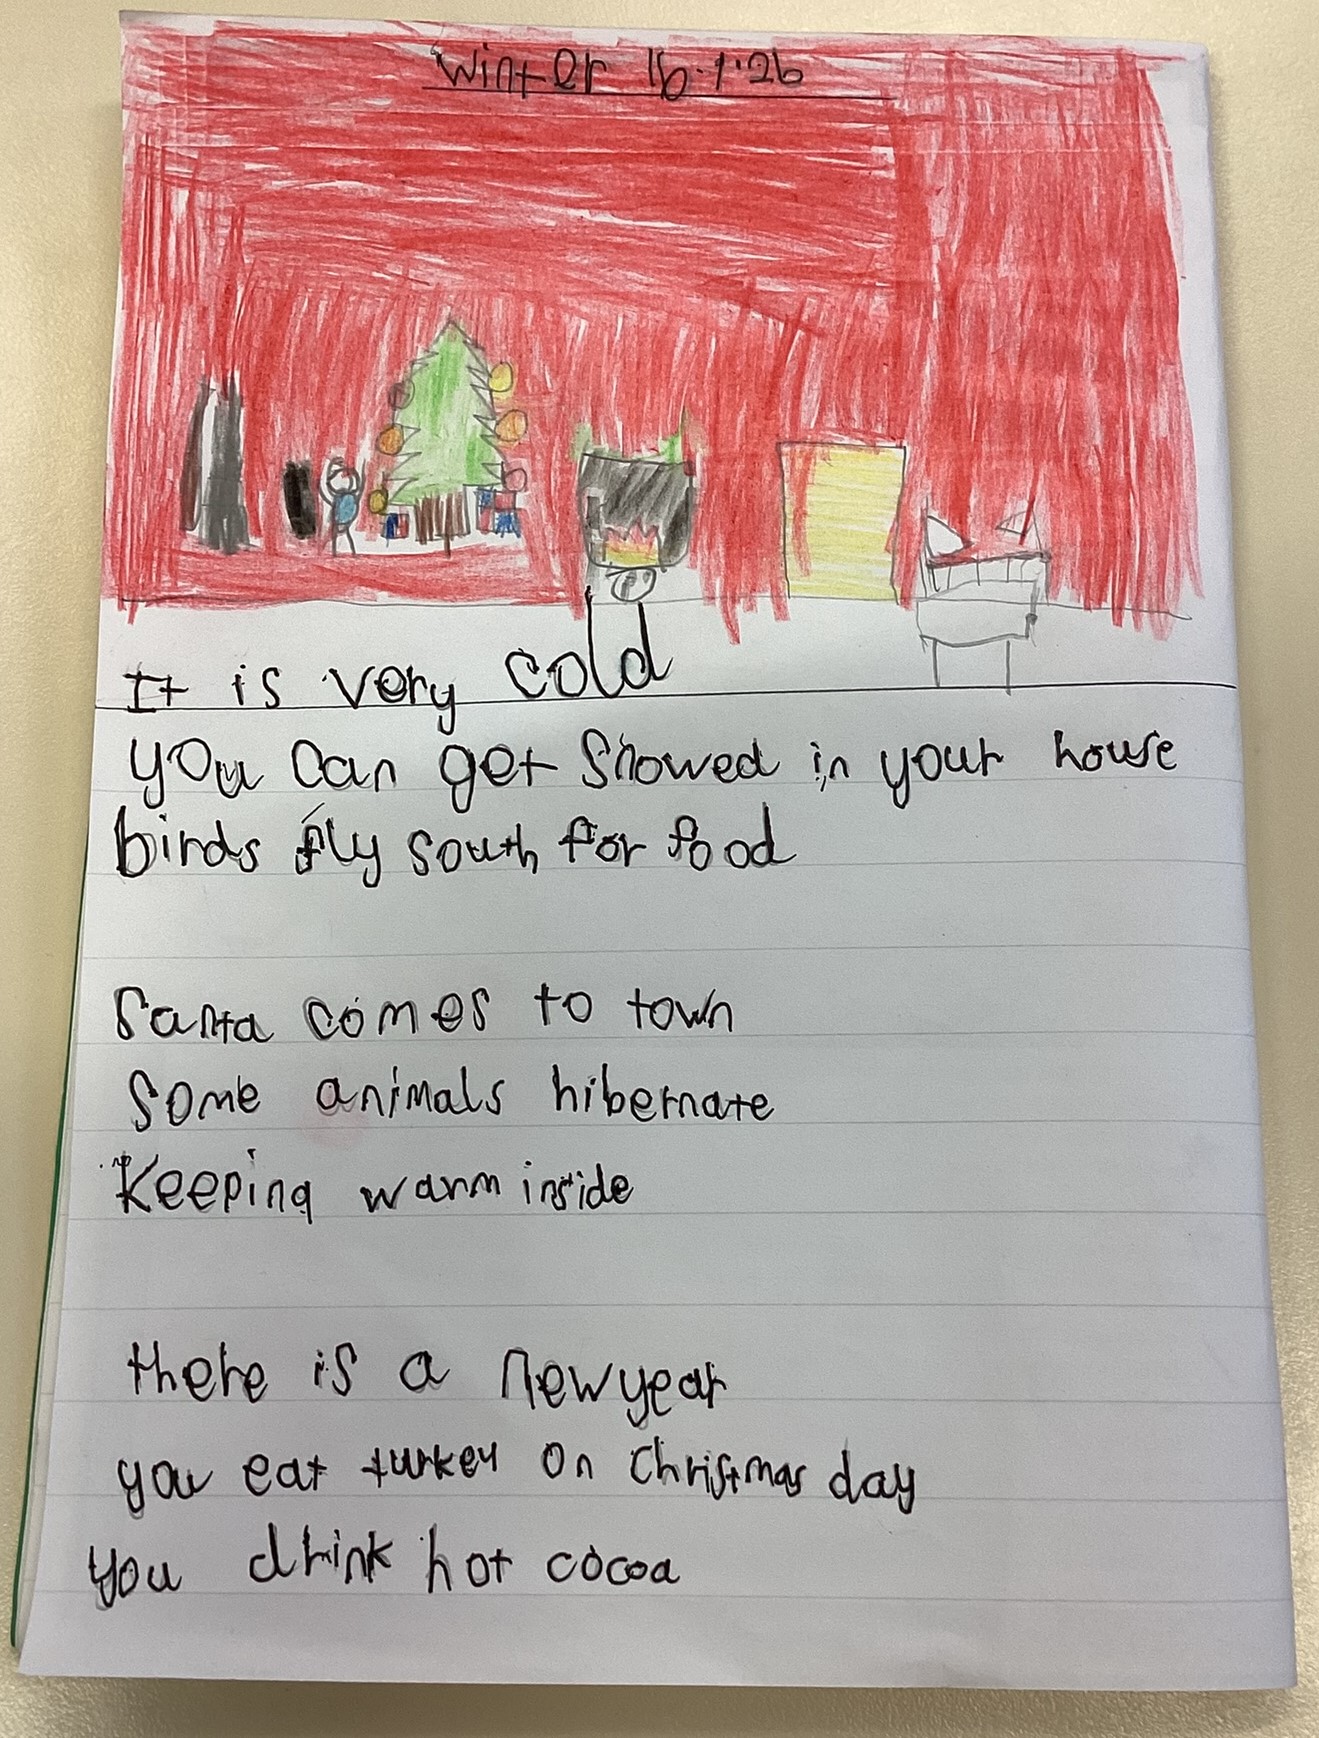 Winter 16.1.26
It is very cold
you can get Snowed in your house
birds fly south for food
Santa comes to town
Some animals hibernate
Keeping warm inside
there is a new year
you eat turkey on Christmas day
you drink hot cocoa